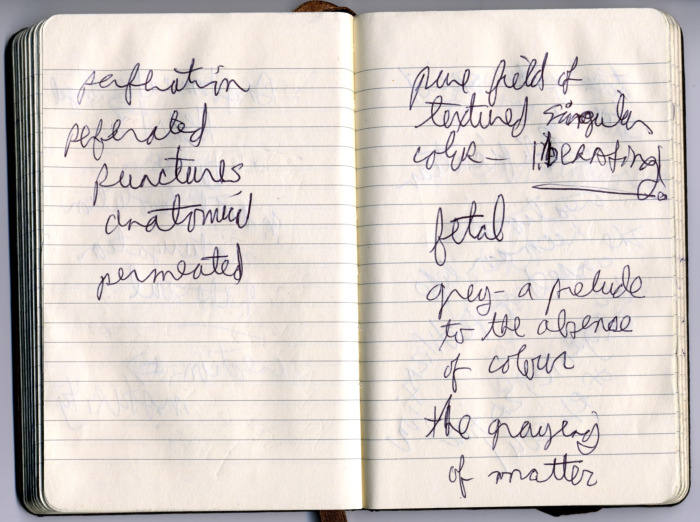 perferation
peferated
punctures
anatomical
permeated
pure field of
textured singular
color - liberating
fetal
grey - a prelude
to the absense
of colour
the graying
of matter